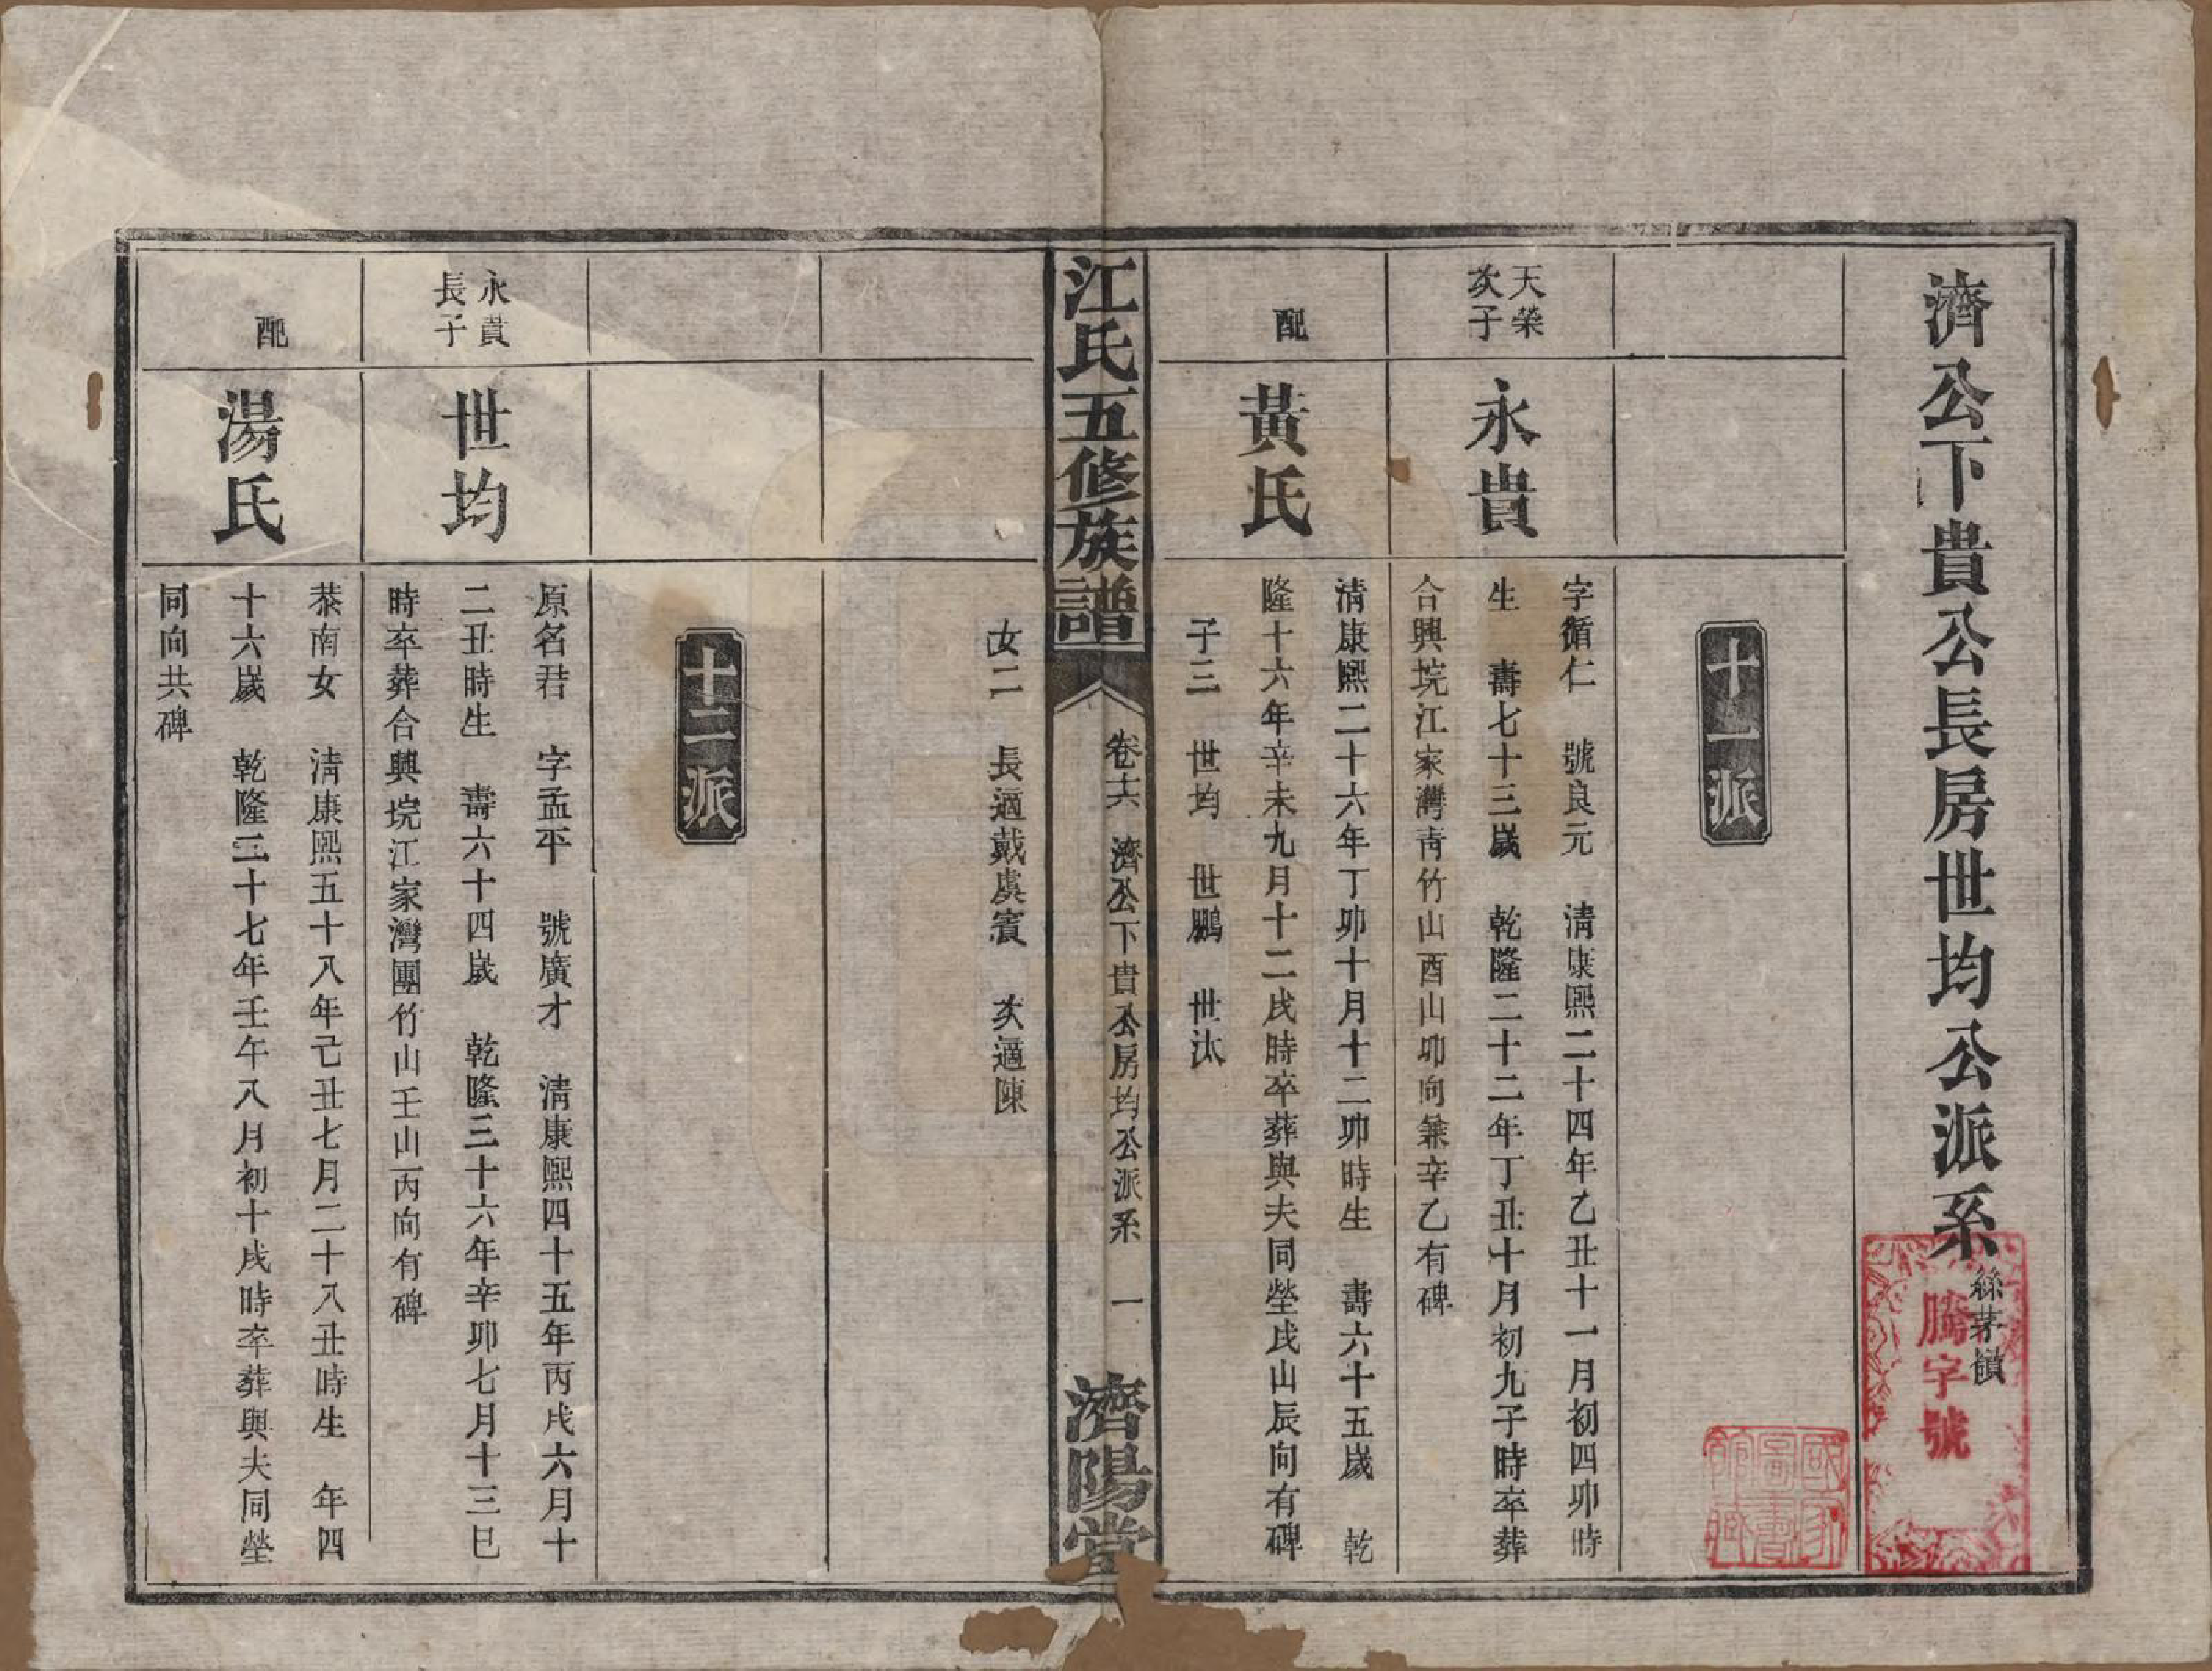 濟公下貴公長房世均公派系
絲茅嶺
騰字號
國家圖書館藏
十一派
天榮次子
永貴
字循仁 號良元 淸康熙二十四年乙丑十一月初四卯時
生 壽七十三歲 乾隆二十二年丁丑十月初九子時卒葬
合興垸江家灣靑竹山酉山卯向兼辛乙有碑
配
黃氏
淸康熙二十六年丁卯十月十二卯時生 壽六十五歲 乾
隆十六年辛未九月十二戌時卒葬與夫同塋戌山辰向有碑
子三 世均 世鵬 世汰
江氏五修族譜
卷十六 濟公下貴公房均公派系 一
濟陽堂
女二 長適戴虞賓 次適陳
十二派
永貴長子
世均
原名君 字孟平 號廣才 淸康熙四十五年丙戌六月十
二丑時生 壽六十四歲 乾隆三十六年辛卯七月十三巳
時卒葬合興垸江家灣團竹山壬山丙向有碑
配
湯氏
恭南女 淸康熙五十八年己丑七月二十八丑時生 年四
十六歲 乾隆二十七年壬午八月初十戌時卒葬與夫同塋
同向共碑